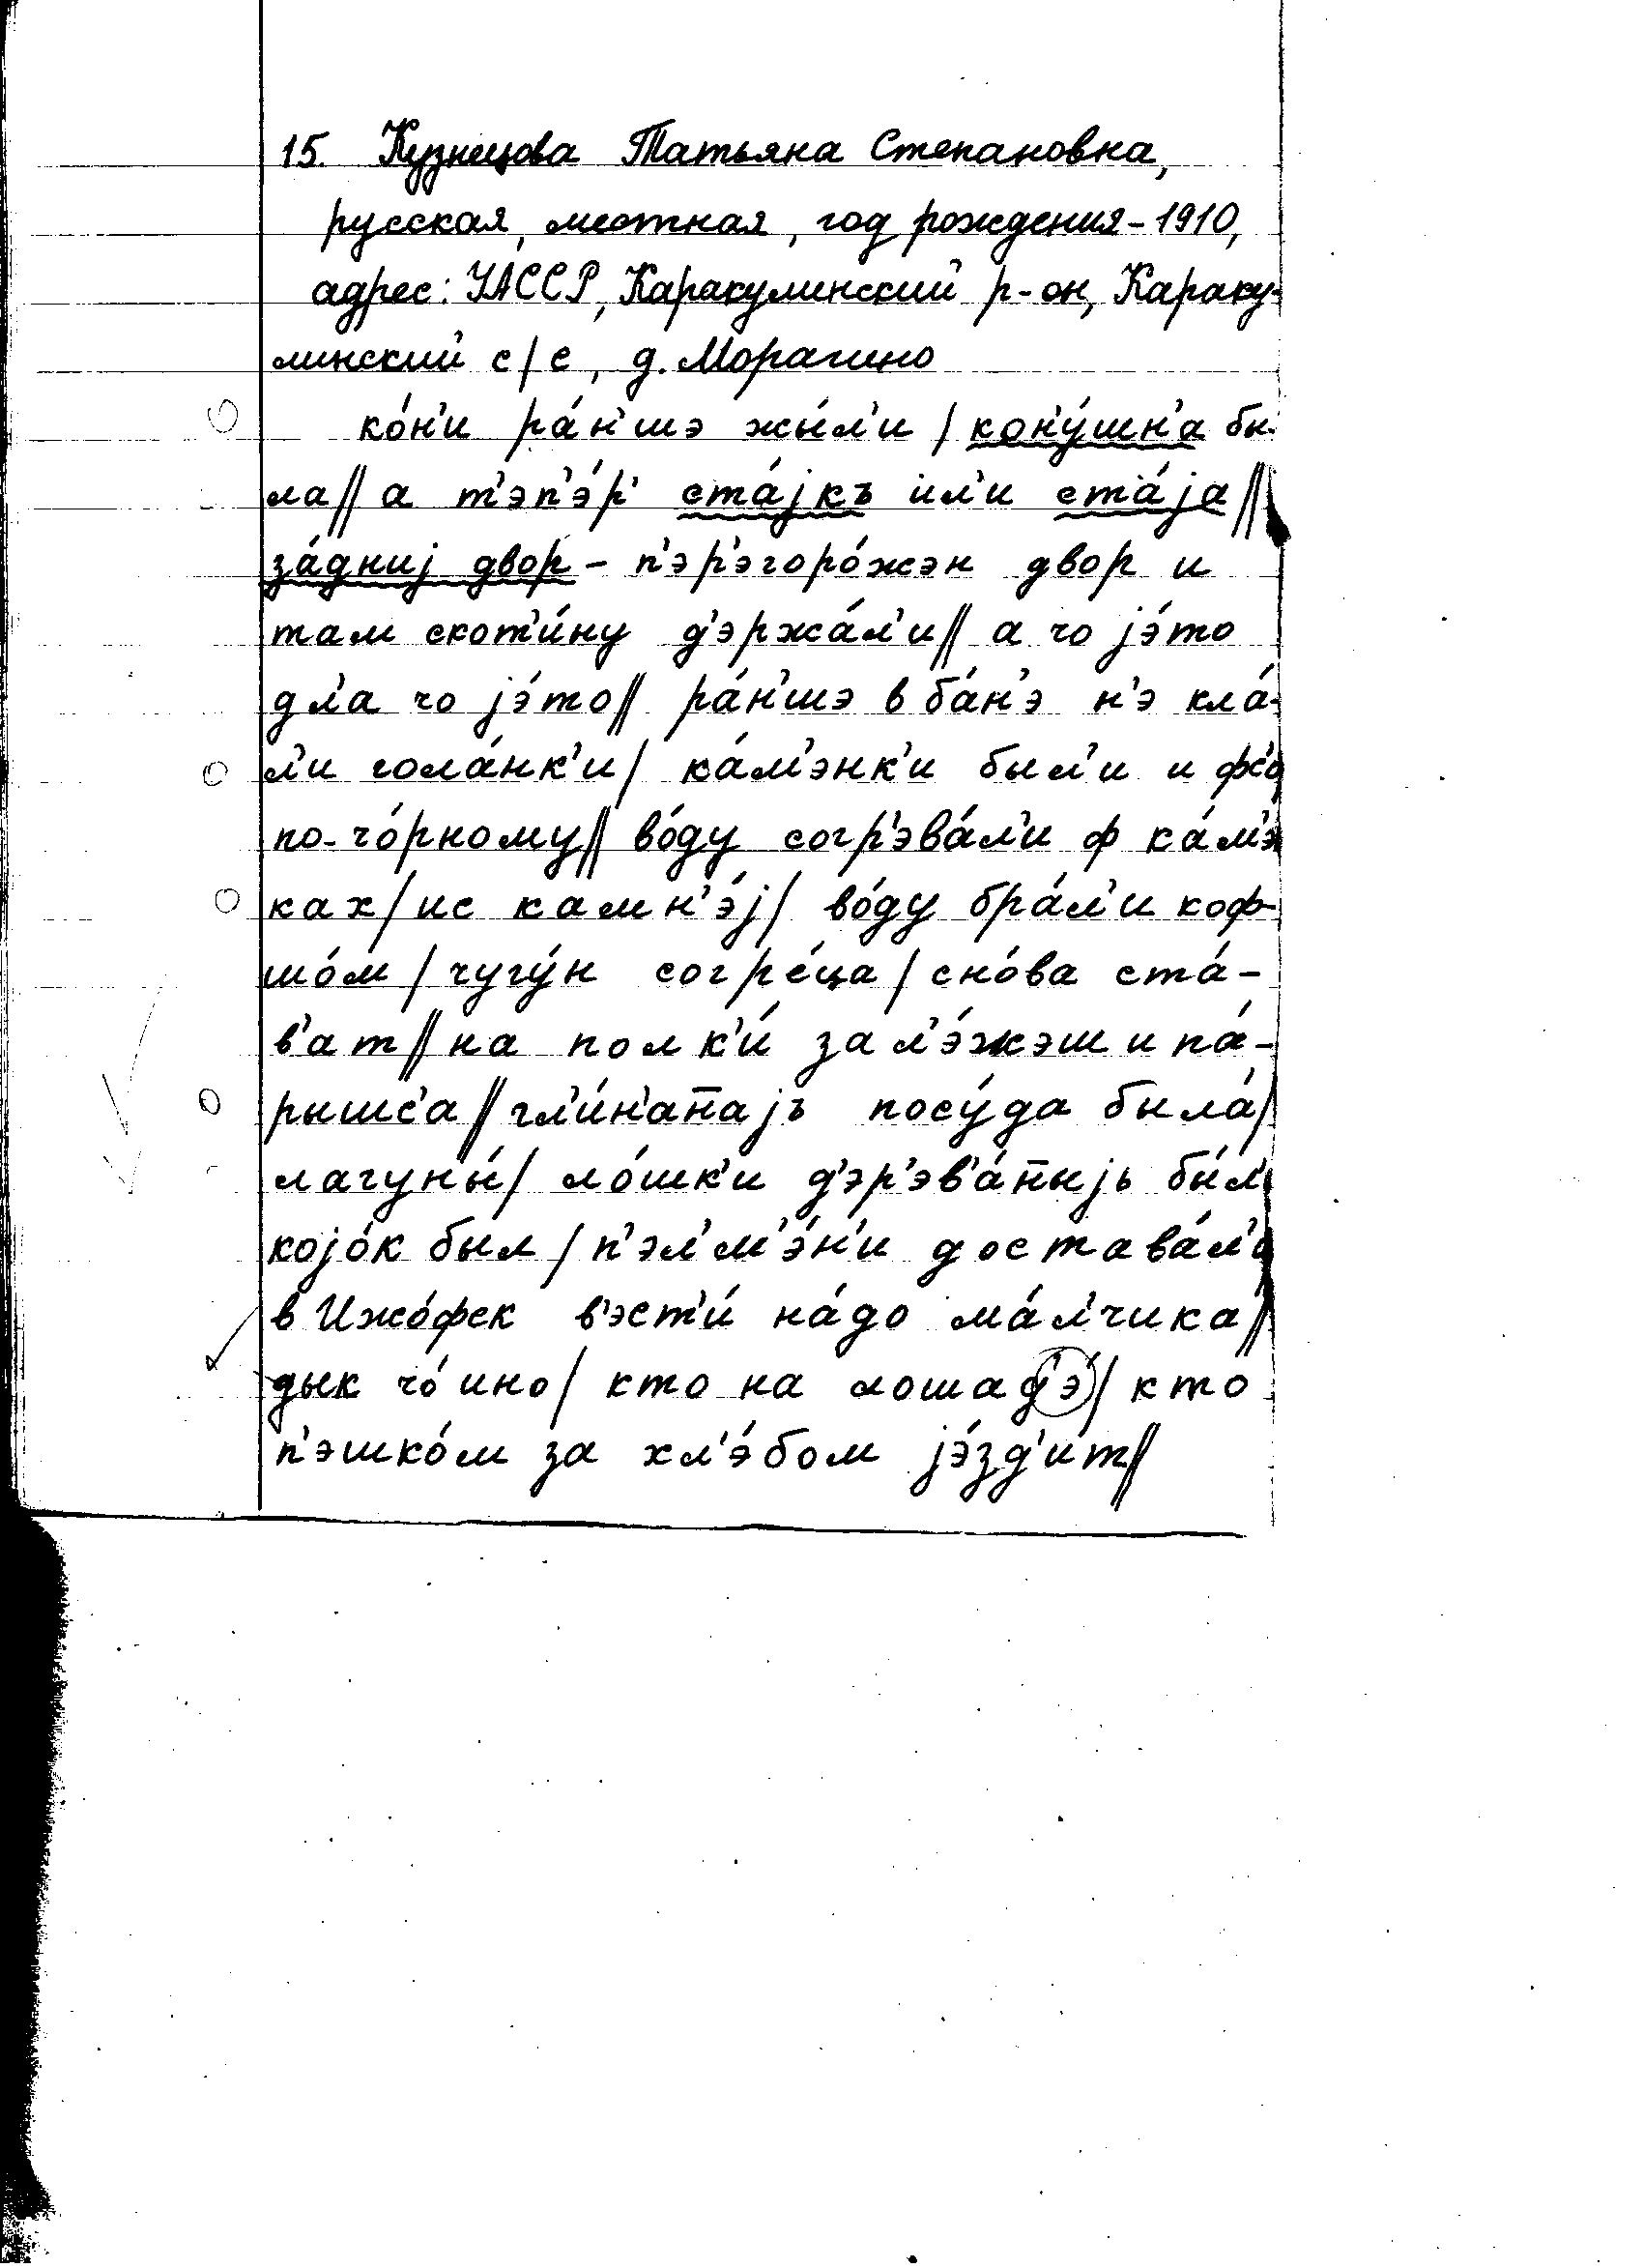 15. Кузнецова Татьяна Степановна,
русская, местная, год рождения – 1910,
адрес: УАССР, Каракулинский р-он, Караку-
линский с/с, д. Морагино
ко́н'и ра́н'шэ жы́л'и / кон'у́шн'а бы-
ла // а т'эп'э́р' ста́jкъ ил'и ста́jа //
за́дниj двор – п'эр'эгоро́жэн двор и
там скот'и́ну д'эржа́л'и // а чо jэ́то
дл'а чо jэ́то // ра́н'шэ в ба́н'э н'э кла́-
л'и гола́нк'и / ка́м'энк'и был'и и фс'о
по-чо́рному // во́ду согр'эва́л'и ф ка́м'э
ках / ис камн'э́j / во́ду бра́л'и коф-
шо́м / чугу́н согре́ца / сно́ва ста́-
в'ат // на полк'и́ зал'э́жэш и па́-
рышс'а // гл'и́н'анаjъ посу́да была́ /
лагуны́ / ло́шк'и д'эр'эв'а́ныjь бы́л'и
коjо́к был / п'эл'м'э́н'и достава́л'и
в Ижо́фск в'эст'и́ на́до ма́л'чика //
дык чо́ ино / кто на лошад'э́ / кто
п'эшко́м за хл'э́бом jэ́зд'ит //